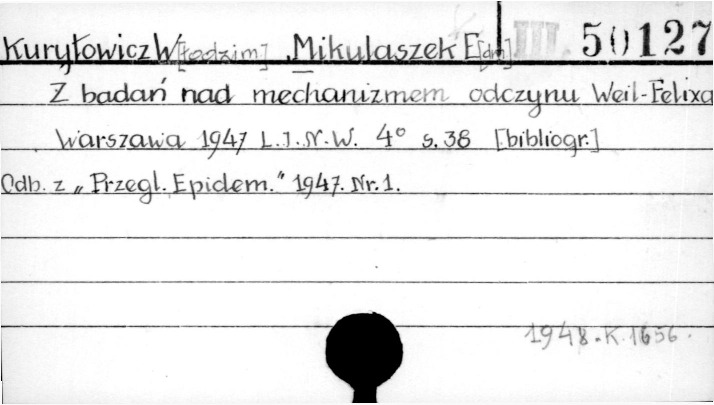 Kuryłowicz W[łodzim], Mikulaszek E[dm] III. 50127
Z badań nad mechanizmem odczynu Weil-Felixa
Warszawa 1947 L.I.N.W. 4° s. 38 [bibliogr.]
Odb. z „Przegl. Epidem." 1947. Nr. 1.
1948. K. 1656.